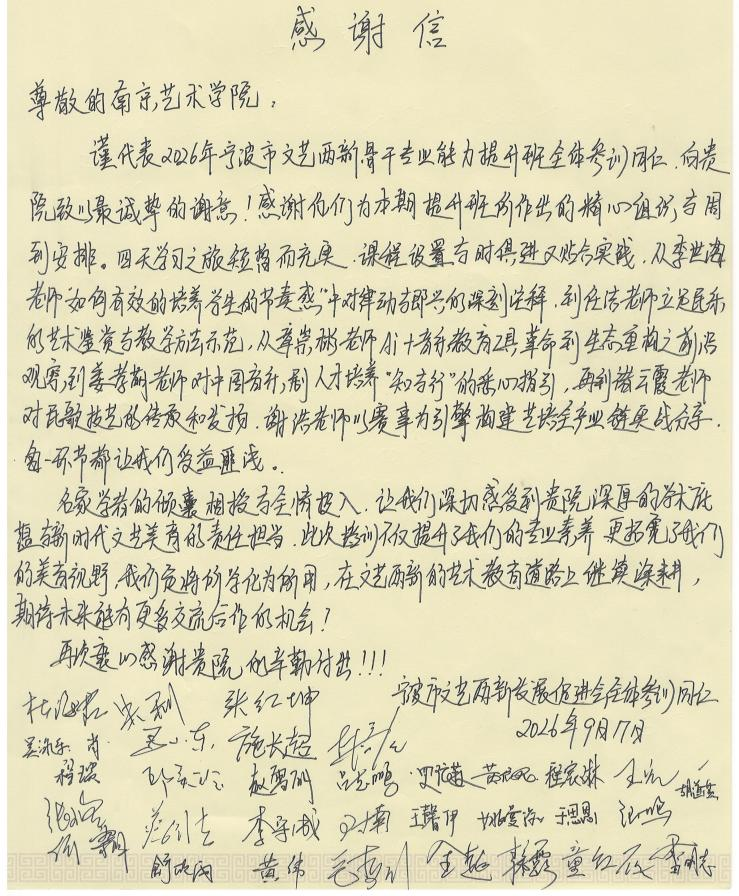 感谢信
尊敬的南京艺术学院:
谨代表2026年宁波市文艺两新骨干专业能力提升班全体参训同仁.向贵
院致以最诚挚的谢意!感谢你们为本期提升班所作出的精心组织与周
到安排。四天学习之旅短暂而充实.课程设置与时俱进又贴合实践.从李世海
老师"如何有效的培养学生的节奏感"中对律动与即兴的深刻注释.到任洁老师立足民乐
的艺术鉴赏与教学方法示范,从章崇彬老师Ai+音乐教育工具革命到生态重构之前沿
观察,到姜孝萌老师对中国音乐剧人才培养"知与行"的悉心指引,再到诸云霞老师
对民歌技艺的传承和发扬.谢浩老师以赛事为引擎构建艺培全产业链实战分享.
每一环节都让我们受益匪浅。
名家学者的倾囊相授与全情投入.让我们深切感受到贵院深厚的学术底
蕴与新时代文艺美育的责任担当.此次培训不仅提升了我们的专业素养更拓宽了我们
的美育视野.我们定将所学化为所用,在文艺两新的艺术教育道路上继续深耕,
期待未来能有更多交流合作的机会!
再次衷心感谢贵院的辛勤付出!!!
宁波市文艺两新发展促进会全体参训同仁
2026年9月17日
张红坤
施长超
程璇 赵雪明 吕志鹏 程宸琳
李宗成 王馨伊 于思恩
黄伟 金超 韩露 童红霞